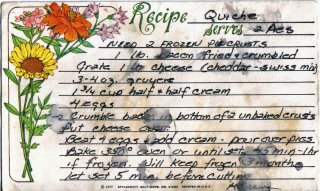 Recipe Quiche
Serves 2 Pies
NEED 2 FROZEN PIECRUSTS
1 lb. bacon fried & crumbled
Grate 1 lb cheese (cheddar-swiss mix)
3-4 oz. gruyere
1 3/4 cup half & half cream
4 eggs
Crumble bacon in bottom of 2 unbaked crusts
Put cheese over
Beat 4 eggs & add cream - pour over pies
Bake 350° oven or until set 45 min-1hr
if frozen. Will keep frozen 3 months
let set 5 min. before cutting
STYLECRAFT, BALTIMORE, MD. PRINTED IN U.S.A.